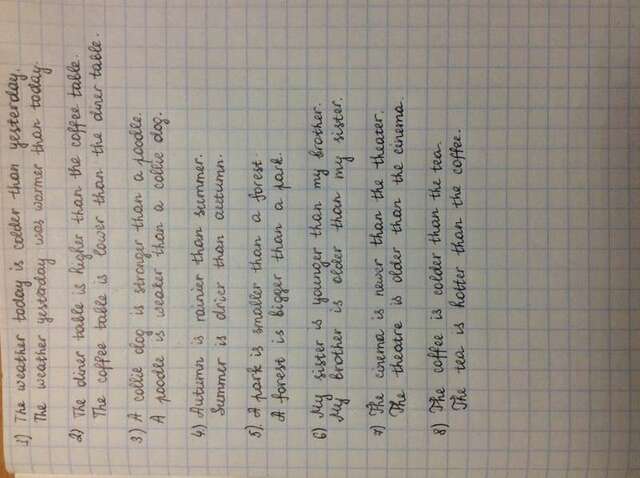 1) The weather today is colder than yesterday.
The weather yesterday was warmer than today.
2) The diner table is higher than the coffee table.
The coffee table is lower than the diner table.
3) A collie dog is stronger than a poodle.
A poodle is weaker than a collie dog.
4) Autumn is rainier than summer.
Summer is drier than autumn.
5). A park is smaller than a forest.
A forest is bigger than a park.
6) My sister is younger than my brother.
My brother is older than my sister.
7) The cinema is newer than the theater.
The theatre is older than the cinema.
8) The coffee is colder than the tea.
The tea is hotter than the coffee.